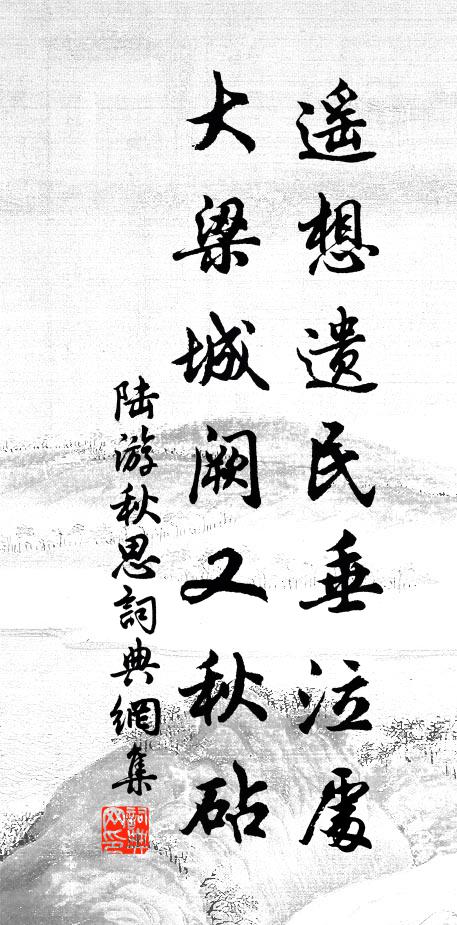 遥想遗民垂泣處
大梁城阙又秋砧
陆游秋思詞典網集